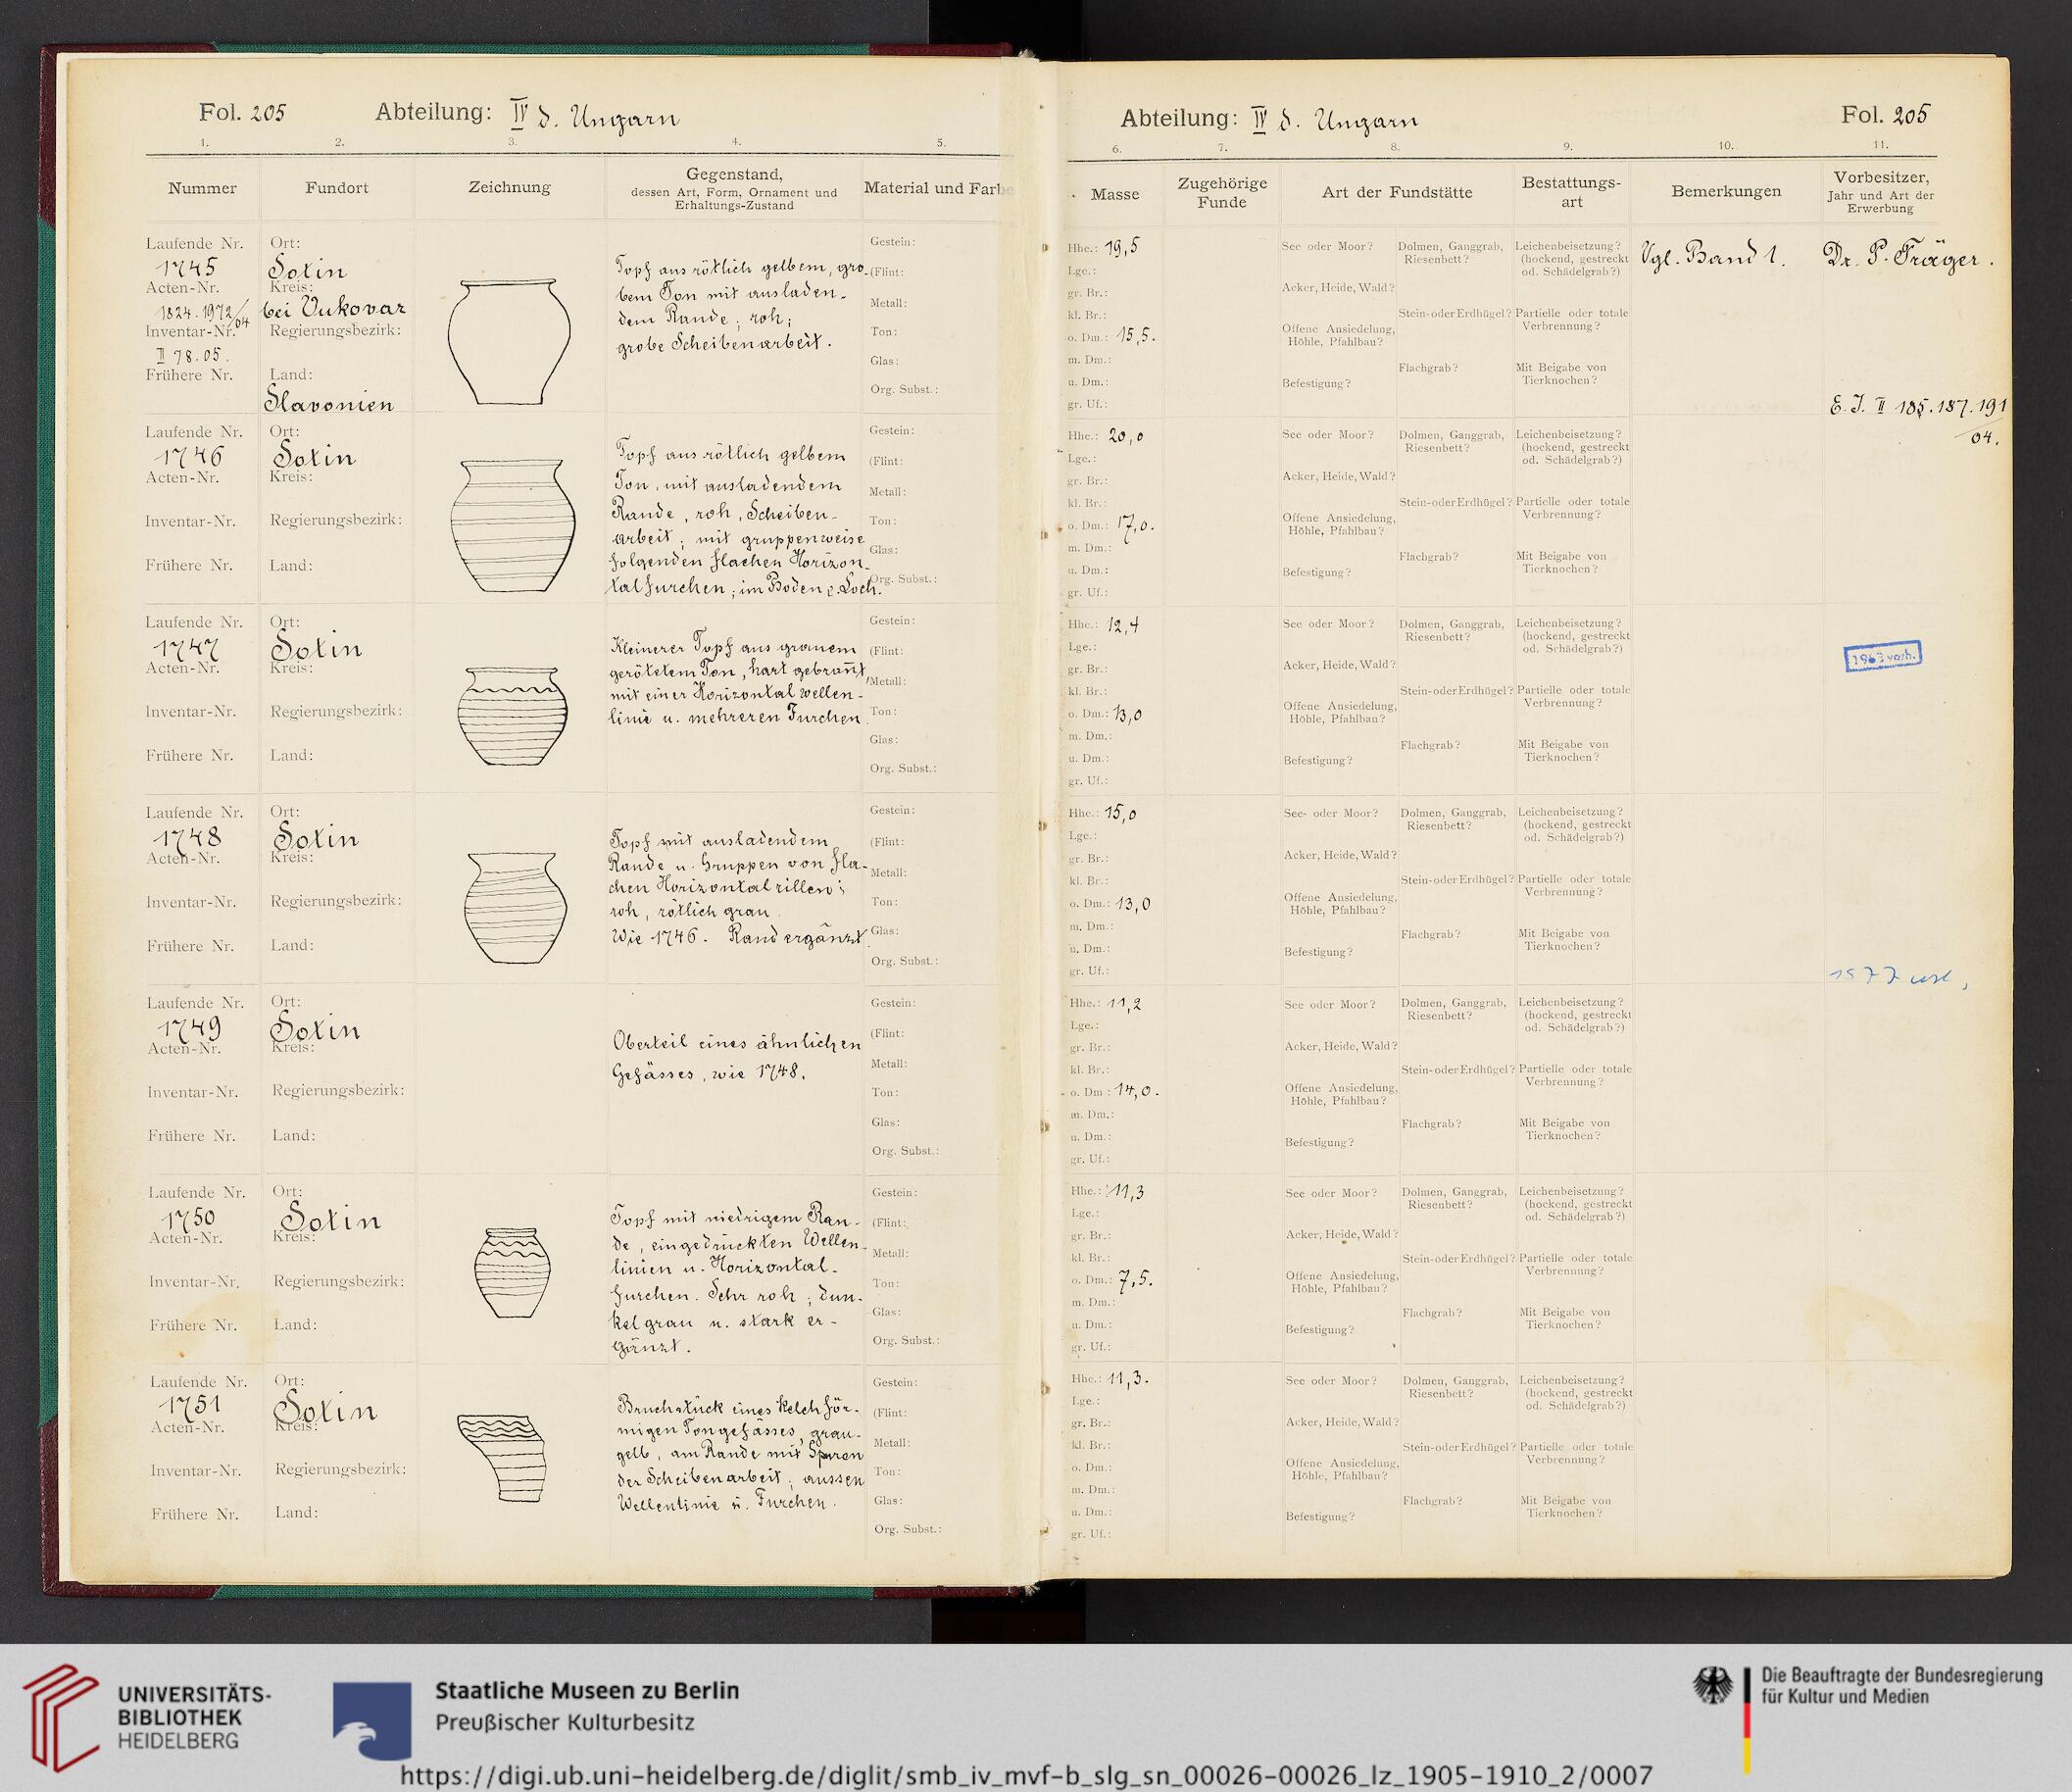 Fol. 205
Abteilung: IV d. Ungarn
1. 2. 3. 4. 5.
Nummer
Fundort
Zeichnung
Gegenstand,
dessen Art, Form, Ornament und
Erhaltungs-Zustand
Material und Farbe
Laufende Nr.
1745
Acten-Nr.
1824.1972/04
Inventar-Nr.
II 78.05.
Frühere Nr.
Ort:
Sotin
Kreis:
bei Vukovar
Regierungsbezirk:
Land:
Slavonien
Topf aus rötlich gelbem, gro-
bem Ton mit ausladen-
dem Rande; roh;
grobe Scheibenarbeit.
Gestein:
(Flint:
Metall:
Ton:
Glas:
Org. Subst.:
Laufende Nr.
1746
Acten-Nr.
Inventar-Nr.
Frühere Nr.
Ort:
Sotin
Kreis:
Regierungsbezirk:
Land:
Topf aus rötlich gelbem
Ton, mit ausladendem
Rande, roh, Scheiben-
arbeit; mit gruppenweise
folgenden flachen Horizon-
talfurchen; im Boden e. Loch.
Gestein:
(Flint:
Metall:
Ton:
Glas:
Org. Subst.:
Laufende Nr.
1747
Acten-Nr.
Inventar-Nr.
Frühere Nr.
Ort:
Sotin
Kreis:
Regierungsbezirk:
Land:
Kleinerer Topf aus grauem
gerötetem Ton, hart gebrañt,
mit einer Horizontalwellen-
linie u. mehreren Furchen.
Gestein:
(Flint:
Metall:
Ton:
Glas:
Org. Subst.:
Laufende Nr.
1748
Acten-Nr.
Inventar-Nr.
Frühere Nr.
Ort:
Sotin
Kreis:
Regierungsbezirk:
Land:
Topf mit ausladendem
Rande u. Gruppen von fla-
chen Horizontalrillen;
roh, rötlich grau.
Wie 1746. Rand ergänzt.
Gestein:
(Flint:
Metall:
Ton:
Glas:
Org. Subst.:
Laufende Nr.
1749
Acten-Nr.
Inventar-Nr.
Frühere Nr.
Ort:
Sotin
Kreis:
Regierungsbezirk:
Land:
Oberteil eines ähnlichen
Gefässes, wie 1748.
Gestein:
(Flint:
Metall:
Ton:
Glas:
Org. Subst.:
Laufende Nr.
1750
Acten-Nr.
Inventar-Nr.
Frühere Nr.
Ort:
Sotin
Kreis:
Regierungsbezirk:
Land:
Topf mit niedrigem Ran-
de, eingedrückten Wellen-
linien u. Horizontal-
furchen. Sehr roh; dun-
kelgrau u. stark er-
gänzt.
Gestein:
(Flint:
Metall:
Ton:
Glas:
Org. Subst.:
Laufende Nr.
1751
Acten-Nr.
Inventar-Nr.
Frühere Nr.
Ort:
Sotin
Kreis:
Regierungsbezirk:
Land:
Bruchstück eines kelchför-
migen Tongefässes, grau-
gelb, am Rande mit Spuren
der Scheibenarbeit; aussen
Wellenlinie u. Furchen.
Gestein:
(Flint:
Metall:
Ton:
Glas:
Org. Subst.:
Abteilung: IV d. Ungarn
Fol. 205
6. 7. 8. 9. 10. 11.
Masse
Zugehörige
Funde
Art der Fundstätte
Bestattungs-
art
Bemerkungen
Vorbesitzer,
Jahr und Art der
Erwerbung
Hhe.: 19,5
Lge.:
gr. Br.:
kl. Br.:
o. Dm.: 15,5.
m. Dm.:
u. Dm.:
gr. Uf.:
See oder Moor?
Acker, Heide, Wald?
Offene Ansiedelung,
Höhle, Pfahlbau?
Befestigung?
Dolmen, Ganggrab,
Riesenbett?
Stein- oder Erdhügel?
Flachgrab?
Leichenbeisetzung?
(hockend, gestreckt
od. Schädelgrab?)
Partielle oder totale
Verbrennung?
Mit Beigabe von
Tierknochen?
Vgl. Band 1.
Dr. P. Träger.
E. J. II 185.187.191
04.
Hhe.: 20,0
Lge.:
gr. Br.:
kl. Br.:
o. Dm.: 17,0.
m. Dm.:
u. Dm.:
gr. Uf.:
See oder Moor?
Acker, Heide, Wald?
Offene Ansiedelung,
Höhle, Pfahlbau?
Befestigung?
Dolmen, Ganggrab,
Riesenbett?
Stein- oder Erdhügel?
Flachgrab?
Leichenbeisetzung?
(hockend, gestreckt
od. Schädelgrab?)
Partielle oder totale
Verbrennung?
Mit Beigabe von
Tierknochen?
Hhe.: 12,4
Lge.:
gr. Br.:
kl. Br.:
o. Dm.: 13,0
m. Dm.:
u. Dm.:
gr. Uf.:
See oder Moor?
Acker, Heide, Wald?
Offene Ansiedelung,
Höhle, Pfahlbau?
Befestigung?
Dolmen, Ganggrab,
Riesenbett?
Stein- oder Erdhügel?
Flachgrab?
Leichenbeisetzung?
(hockend, gestreckt
od. Schädelgrab?)
Partielle oder totale
Verbrennung?
Mit Beigabe von
Tierknochen?
1963 vorh.
Hhe.: 15,0
Lge.:
gr. Br.:
kl. Br.:
o. Dm.: 13,0
m. Dm.:
u. Dm.:
gr. Uf.:
See- oder Moor?
Acker, Heide, Wald?
Offene Ansiedelung,
Höhle, Pfahlbau?
Befestigung?
Dolmen, Ganggrab,
Riesenbett?
Stein- oder Erdhügel?
Flachgrab?
Leichenbeisetzung?
(hockend, gestreckt
od. Schädelgrab?)
Partielle oder totale
Verbrennung?
Mit Beigabe von
Tierknochen?
1977
Hhe.: 11,2
Lge.:
gr. Br.:
kl. Br.:
o. Dm.: 14,0.
m. Dm.:
u. Dm.:
gr. Uf.:
See oder Moor?
Acker, Heide, Wald?
Offene Ansiedelung,
Höhle, Pfahlbau?
Befestigung?
Dolmen, Ganggrab,
Riesenbett?
Stein- oder Erdhügel?
Flachgrab?
Leichenbeisetzung?
(hockend, gestreckt
od. Schädelgrab?)
Partielle oder totale
Verbrennung?
Mit Beigabe von
Tierknochen?
Hhe.: 11,3
Lge.:
gr. Br.:
kl. Br.:
o. Dm.: 7,5.
m. Dm.:
u. Dm.:
gr. Uf.:
See oder Moor?
Acker, Heide, Wald?
Offene Ansiedelung,
Höhle, Pfahlbau?
Befestigung?
Dolmen, Ganggrab,
Riesenbett?
Stein- oder Erdhügel?
Flachgrab?
Leichenbeisetzung?
(hockend, gestreckt
od. Schädelgrab?)
Partielle oder totale
Verbrennung?
Mit Beigabe von
Tierknochen?
Hhe.: 11,3.
Lge.:
gr. Br.:
kl. Br.:
o. Dm.:
m. Dm.:
u. Dm.:
gr. Uf.:
See oder Moor?
Acker, Heide, Wald?
Offene Ansiedelung,
Höhle, Pfahlbau?
Befestigung?
Dolmen, Ganggrab,
Riesenbett?
Stein- oder Erdhügel?
Flachgrab?
Leichenbeisetzung?
(hockend, gestreckt
od. Schädelgrab?)
Partielle oder totale
Verbrennung?
Mit Beigabe von
Tierknochen?
UNIVERSITÄTS-
BIBLIOTHEK
HEIDELBERG
Staatliche Museen zu Berlin
Preußischer Kulturbesitz
Die Beauftragte der Bundesregierung
für Kultur und Medien
https://digi.ub.uni-heidelberg.de/diglit/smb_iv_mvf-b_slg_sn_00026-00026_lz_1905-1910_2/0007